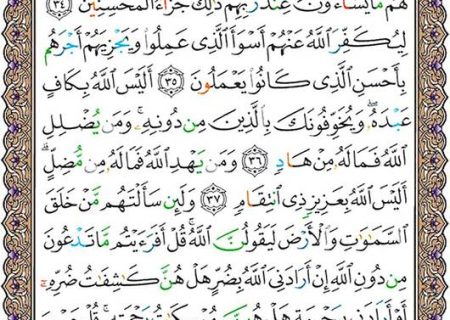 هُم مَّا يَشَآءُونَ عِندَ رَبِّهِمْ ذَٰلِكَ جَزَآءُ ٱلْمُحْسِنِينَ ٣٤
لِيُكَفِّرَ ٱللَّهُ عَنْهُمْ أَسْوَأَ ٱلَّذِى عَمِلُوا۟ وَيَجْزِيَهُمْ أَجْرَهُم
بِأَحْسَنِ ٱلَّذِى كَانُوا۟ يَعْمَلُونَ ٣٥ أَلَيْسَ ٱللَّهُ بِكَافٍ
عَبْدَهُۥ ۖ وَيُخَوِّفُونَكَ بِٱلَّذِينَ مِن دُونِهِۦ ۚ وَمَن يُضْلِلِ
ٱللَّهُ فَمَا لَهُۥ مِنْ هَادٍ ٣٦ وَمَن يَهْدِ ٱللَّهُ فَمَا لَهُۥ مِن مُّضِلٍّ ۗ
أَلَيْسَ ٱللَّهُ بِعَزِيزٍ ذِى ٱنتِقَامٍ ٣٧ وَلَئِن سَأَلْتَهُم مَّنْ خَلَقَ
ٱلسَّمَٰوَٰتِ وَٱلْأَرْضَ لَيَقُولُنَّ ٱللَّهُ ۚ قُلْ أَفَرَءَيْتُم مَّا تَدْعُونَ
مِن دُونِ ٱللَّهِ إِنْ أَرَادَنِىَ ٱللَّهُ بِضُرٍّ هَلْ هُنَّ كَٰشِفَٰتُ ضُرِّهِۦٓ
أَوْ أَرَادَنِى بِرَحْمَةٍ هَلْ هُنَّ مُمْسِكَٰتُ رَحْمَتِهِۦ ۚ قُلْ حَسْبِىَ